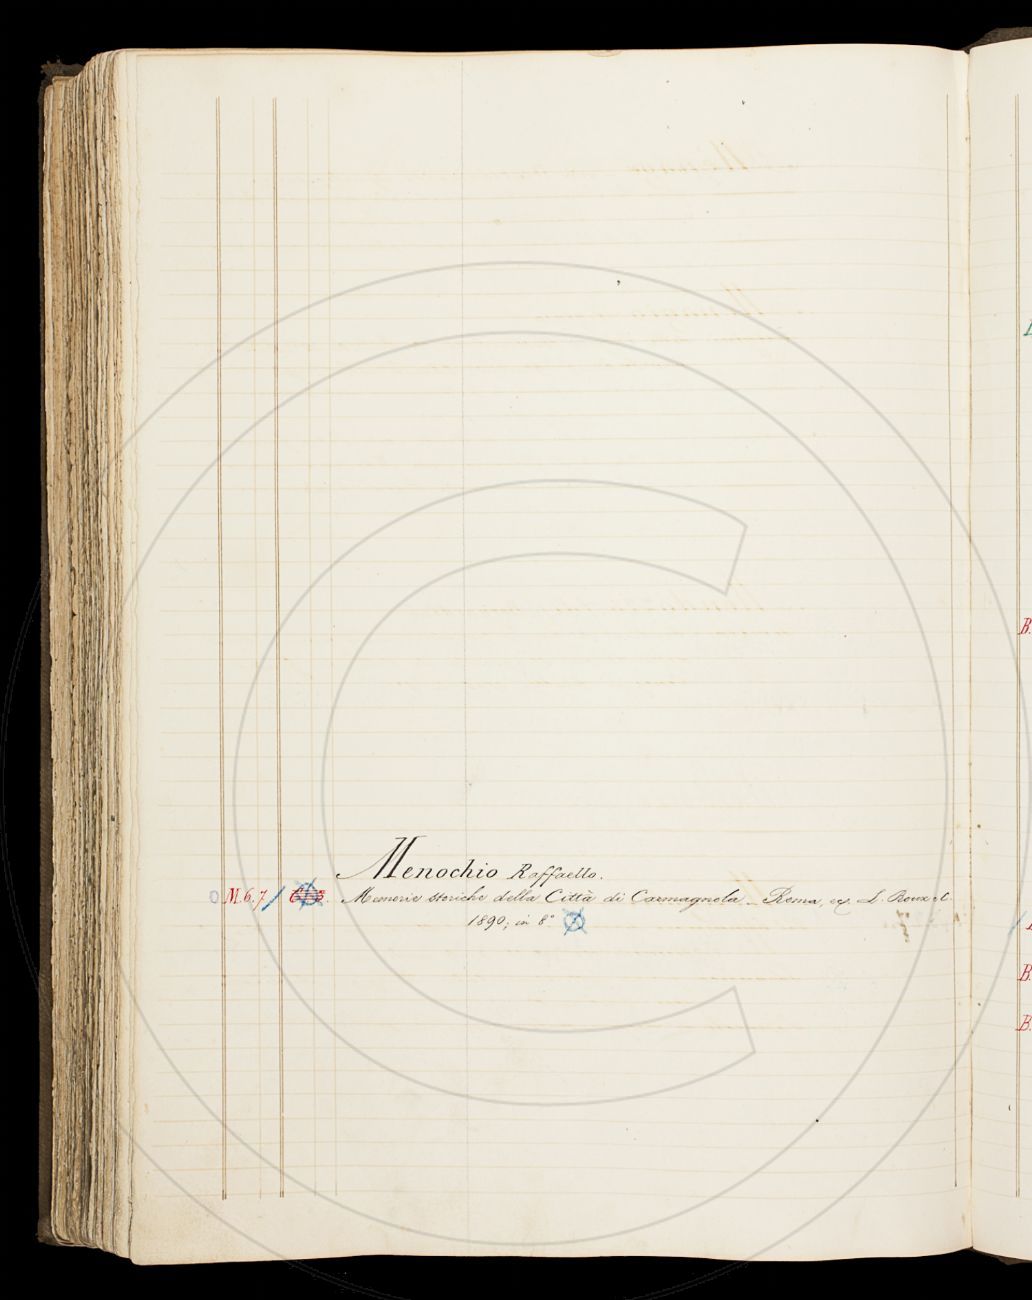 Menochio Raffaello.
O M.6.7 Memorie storiche della Città di Carmagnola _ Roma, ex L. Roux et C.
1890; in 8°
B.
B.
B.